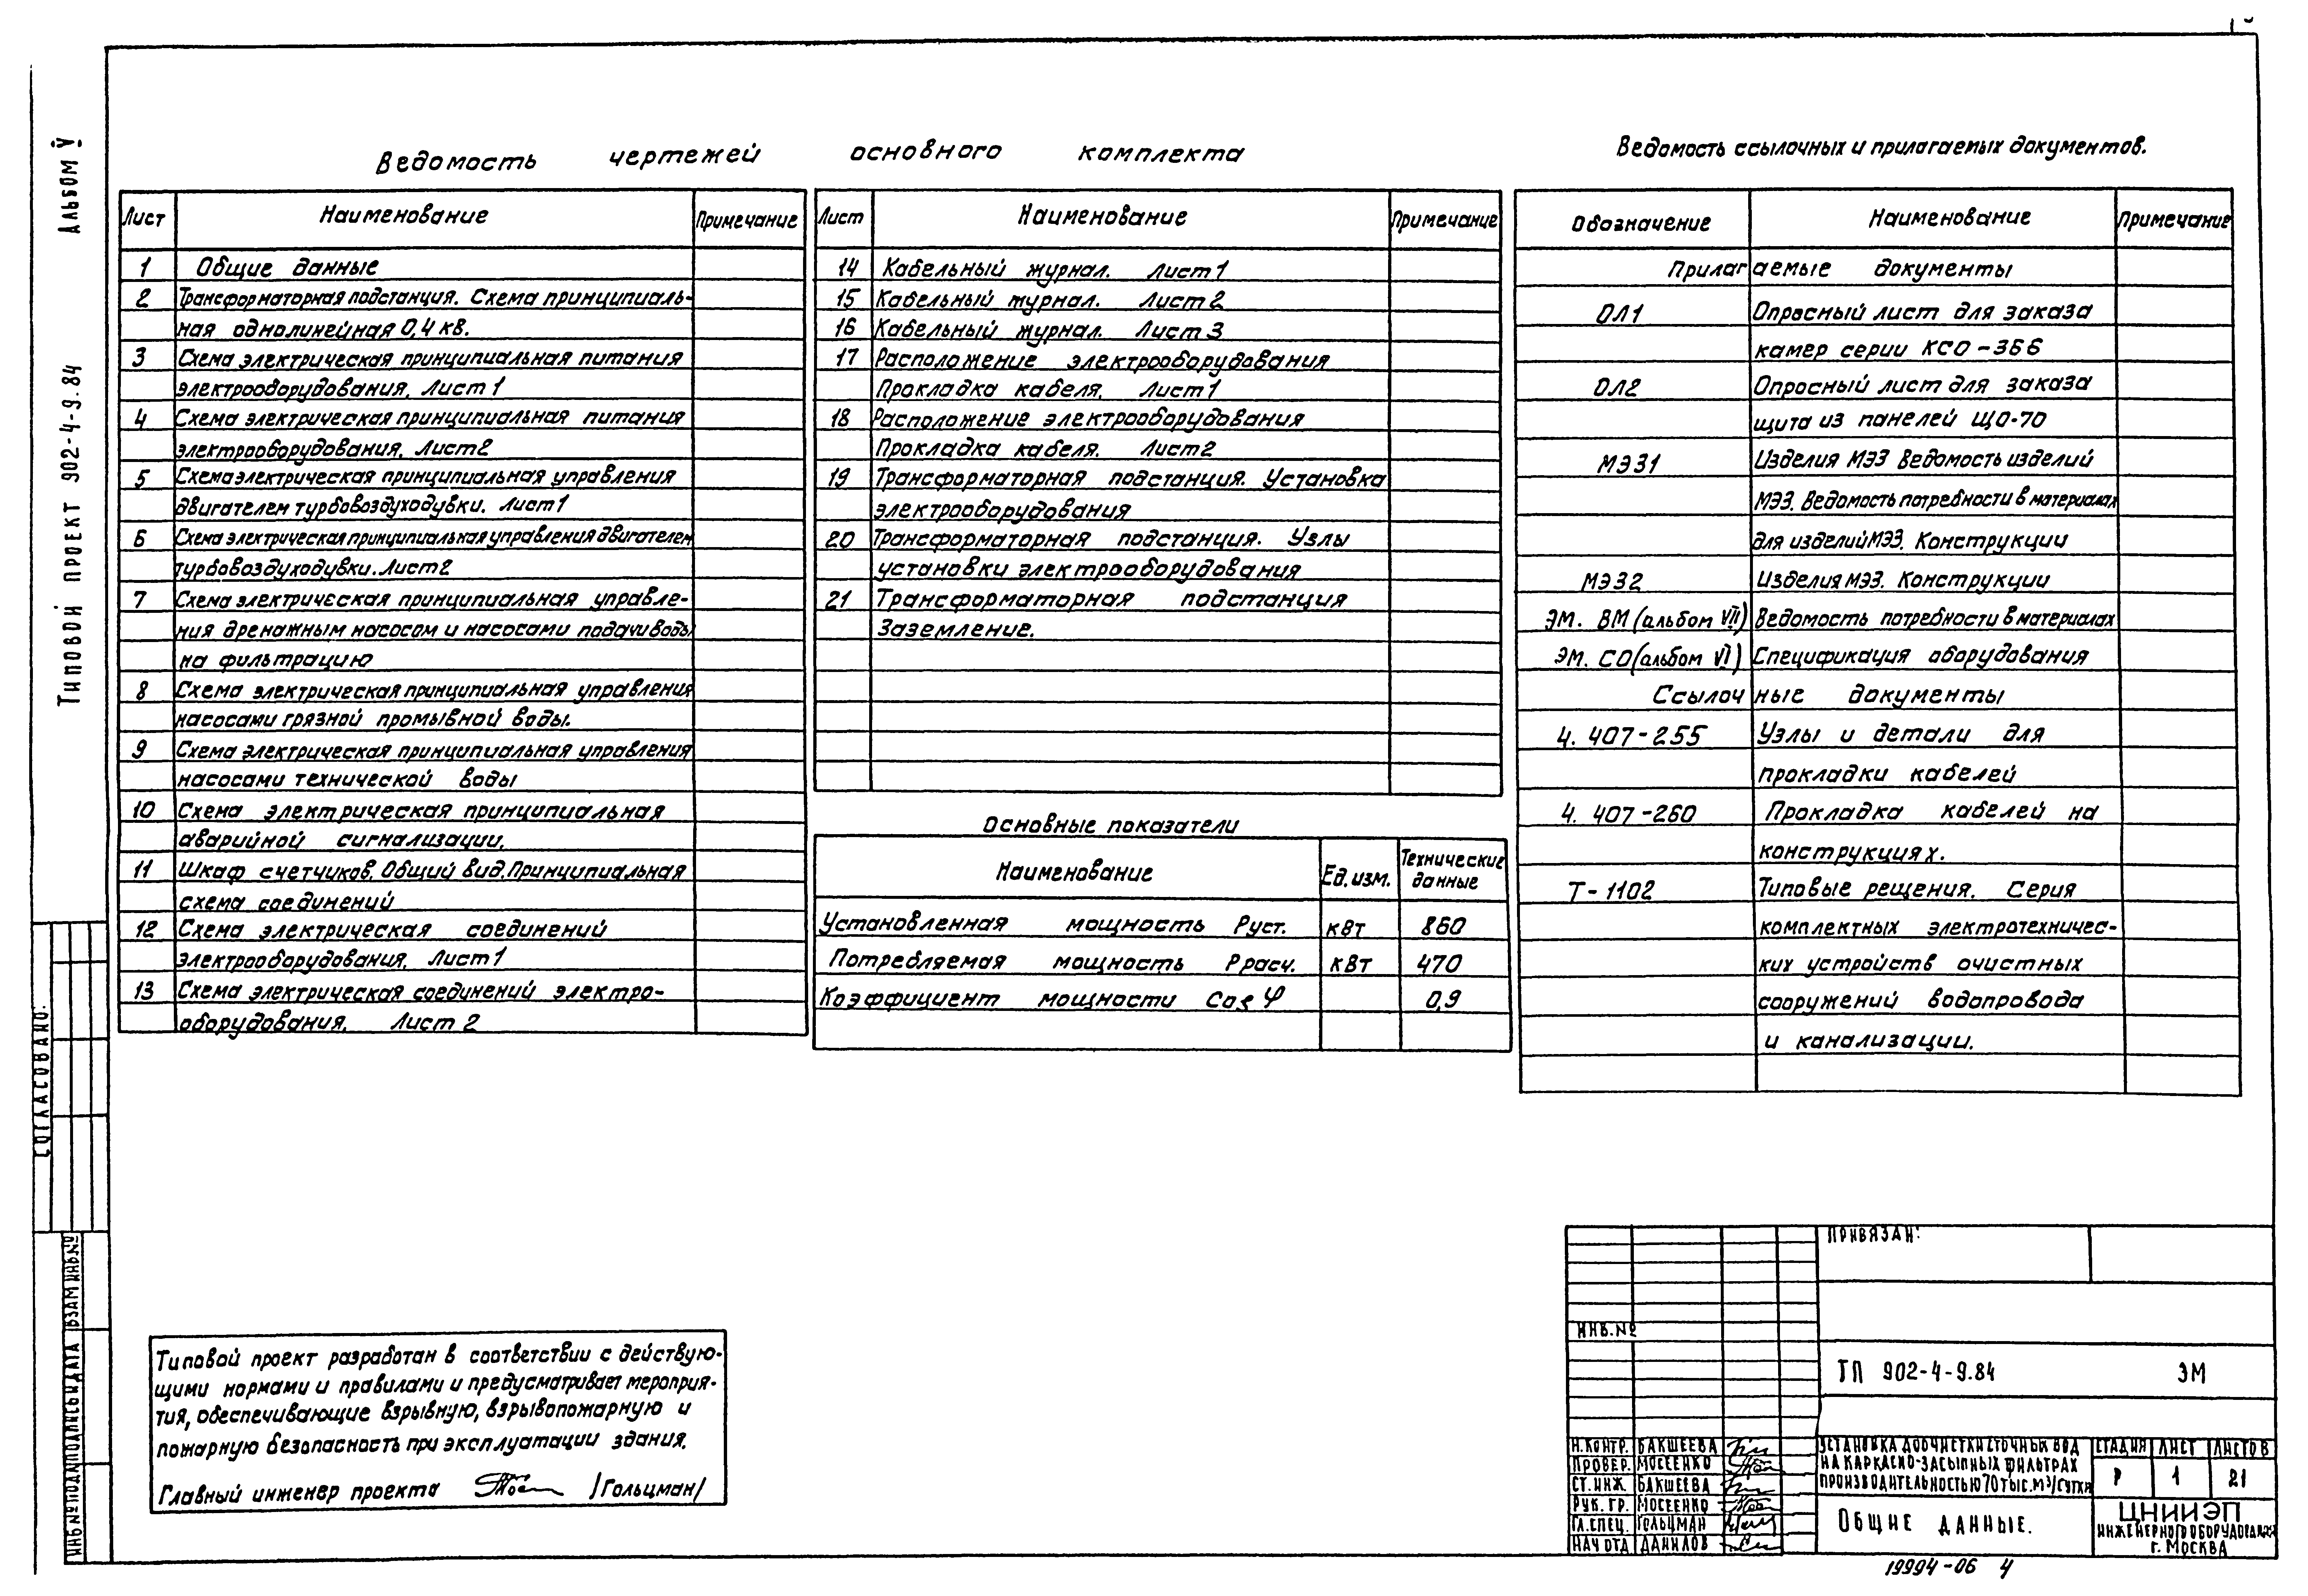 Альбом V
Типовой проект 902-4-9.84
Ведомость чертежей основного комплекта
Лист Наименование Примечание
1 Общие данные
2 Трансформаторная подстанция. Схема принципиаль-
ная однолинейная 0,4 кв.
3 Схема электрическая принципиальная питания
электрооборудования. Лист 1
4 Схема электрическая принципиальная питания
электрооборудования. Лист 2
5 Схема электрическая принципиальная управления
двигателем турбовоздуходувки. Лист 1
6 Схема электрическая принципиальная управления двигателем
турбовоздуходувки. Лист 2
7 Схема электрическая принципиальная управле-
ния дренажным насосом и насосами подачи воды
на фильтрацию
8 Схема электрическая принципиальная управления
насосами грязной промывной воды.
9 Схема электрическая принципиальная управления
насосами технической воды
10 Схема электрическая принципиальная
аварийной сигнализации.
11 Шкаф счетчиков. Общий вид. Принципиальная
схема соединений
12 Схема электрическая соединений
электрооборудования. Лист 1
13 Схема электрическая соединений электро-
оборудования. Лист 2
Лист Наименование Примечание
14 Кабельный журнал. Лист 1
15 Кабельный журнал. Лист 2
16 Кабельный журнал. Лист 3
17 Расположение электрооборудования
Прокладка кабеля. Лист 1
18 Расположение электрооборудования
Прокладка кабеля. Лист 2
19 Трансформаторная подстанция. Установка
электрооборудования
20 Трансформаторная подстанция. Узлы
установки электрооборудования
21 Трансформаторная подстанция
Заземление.
Основные показатели
Наименование Ед. изм. Технические
данные
Установленная мощность Руст. кВт 860
Потребляемая мощность Ррасч. кВт 470
Коэффициент мощности Cos φ 0,9
Ведомость ссылочных и прилагаемых документов.
Обозначение Наименование Примечание
Прилагаемые документы
ОЛ1 Опросный лист для заказа
камер серии КСО-366
ОЛ2 Опросный лист для заказа
щита из панелей ЩО-70
МЭЗ1 Изделия МЭЗ Ведомость изделий
МЭЗ. Ведомость потребности в материалах
для изделий МЭЗ. Конструкции
МЭЗ2 Изделия МЭЗ. Конструкции
ЭМ. ВМ (альбом VII) Ведомость потребности в материалах
ЭМ. СО (альбом VI) Спецификация оборудования
Ссылочные документы
4. 407-255 Узлы и детали для
прокладки кабелей
4. 407-260 Прокладка кабелей на
конструкциях.
Т-1102 Типовые рещения. Серия
комплектных электротехничес-
ких устройств очистных
сооружений водопровода
и канализации.
Согласовано:
Инв № подл Подпись и дата Взам инв. №
Типовой проект разработан в соответствии с действую-
щими нормами и правилами и предусматривает мероприя-
тия, обеспечивающие взрывную, взрывопожарную и
пожарную безопасность при эксплуатации здания.
Главный инженер проекта /Гольцман/
Привязан:
Инв. №
ТП 902-4-9.84 ЭМ
Н.контр. Бакшеева
Провер. Мосеенко
Ст. инж. Бакшеева
Рук. гр. Мосеенко
Гл. спец. Гольцман
Нач отд Данилов
Установка доочистки сточных вод
на каркасно-засыпных фильтрах
производительностью 70 тыс. м³/сутки
Стадия Лист Листов
Р 1 21
Общие данные.
ЦНИИЭП
инженерного оборудования
г. Москва
19994-06 4